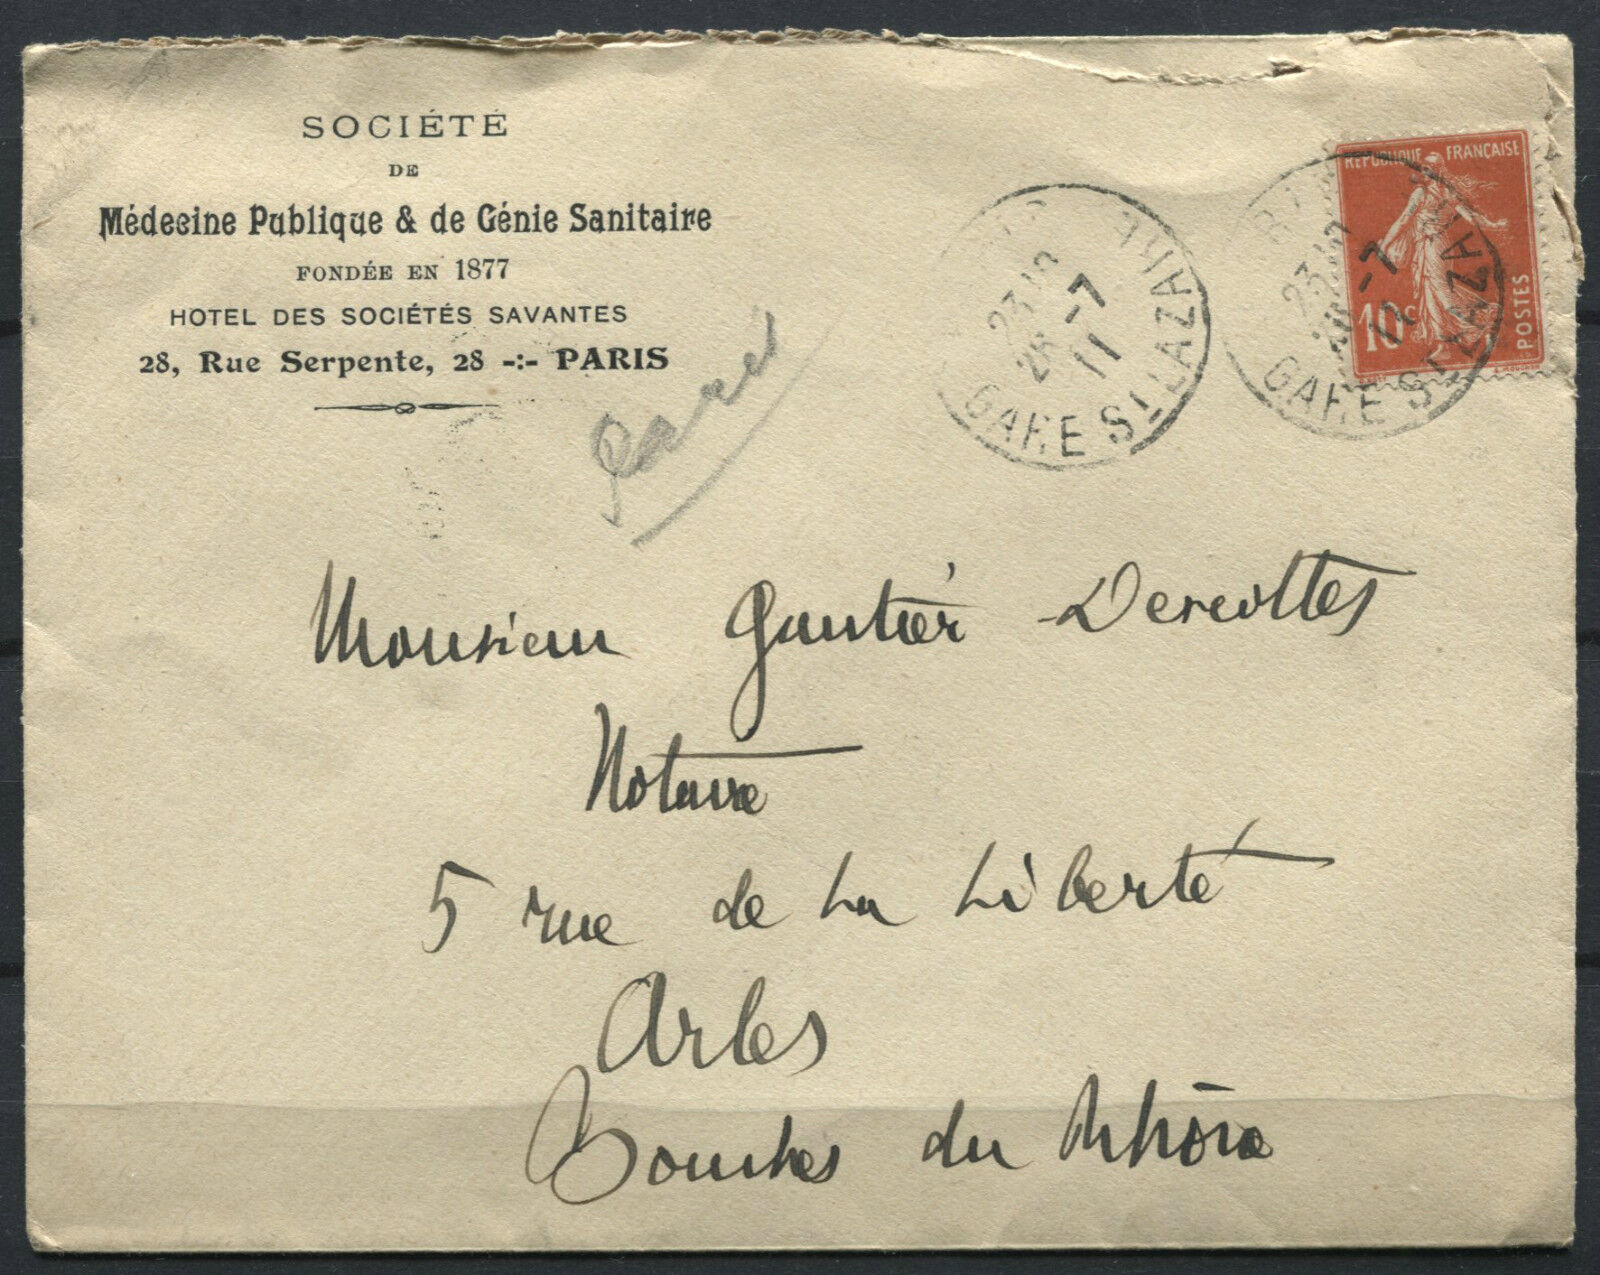 SOCIÉTÉ
DE
Médecine Publique & de Génie Sanitaire
FONDÉE EN 1877
HOTEL DES SOCIÉTÉS SAVANTES
28, Rue Serpente, 28 -:- PARIS
23
26 -7
11
GARE ST LAZARE
REPUBLIQUE FRANÇAISE
10c
POSTES
-7
11
GARE ST LAZARE
Monsieur Gautier-Descottes
Notaire
5 rue de la Liberté
Arles
Bouches du Rhône